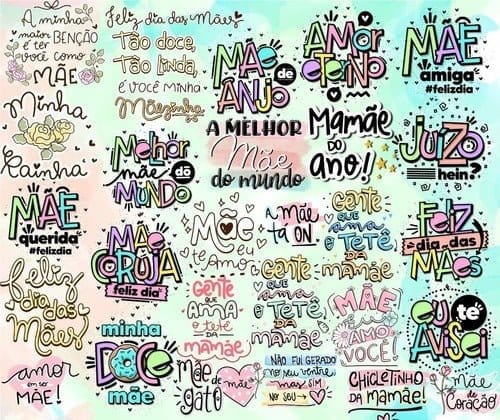 A minha
maior BENÇÃO
é ter
você como
MÃE
Feliz dia das Mães!
Tão doce,
Tão linda,
e você minha
Mãezinha
MÃE
de
ANJO
AMOR
eterno
MÃE
amiga
#felizdia
Minha
Rainha
Melhor
mãe do
MUNDO
A MELHOR
Mãe
do mundo
Mamãe
DO
ano!
JUÍZO
hein?
MÃE
querida
#felizdia
MÃE
CORUJA
feliz dia
Mãe
eu
te Amo
a mãe
tá ON
Gente
QUE
ama
o TETÊ
DA
MAMÃE
FELIZ
dia das
MÃES
Feliz
dia das
Mães
Gente
QUE
AMA
o tetê
DA
MAMÃE
Gente
QUE
ama
o TETÊ
DA
MAMÃE
MÃE
eu
AMO
VOCÊ!
eu te
AVISEI
amor
em ser
MÃE!
minha
DOCE
mãe
Mãe
de
gato
mãe
de
NÃO FUI GERADO
no seu ventre
mas SIM
NO seu
CHICLETINHO
DA mamãe!
Mãe
de
Coração